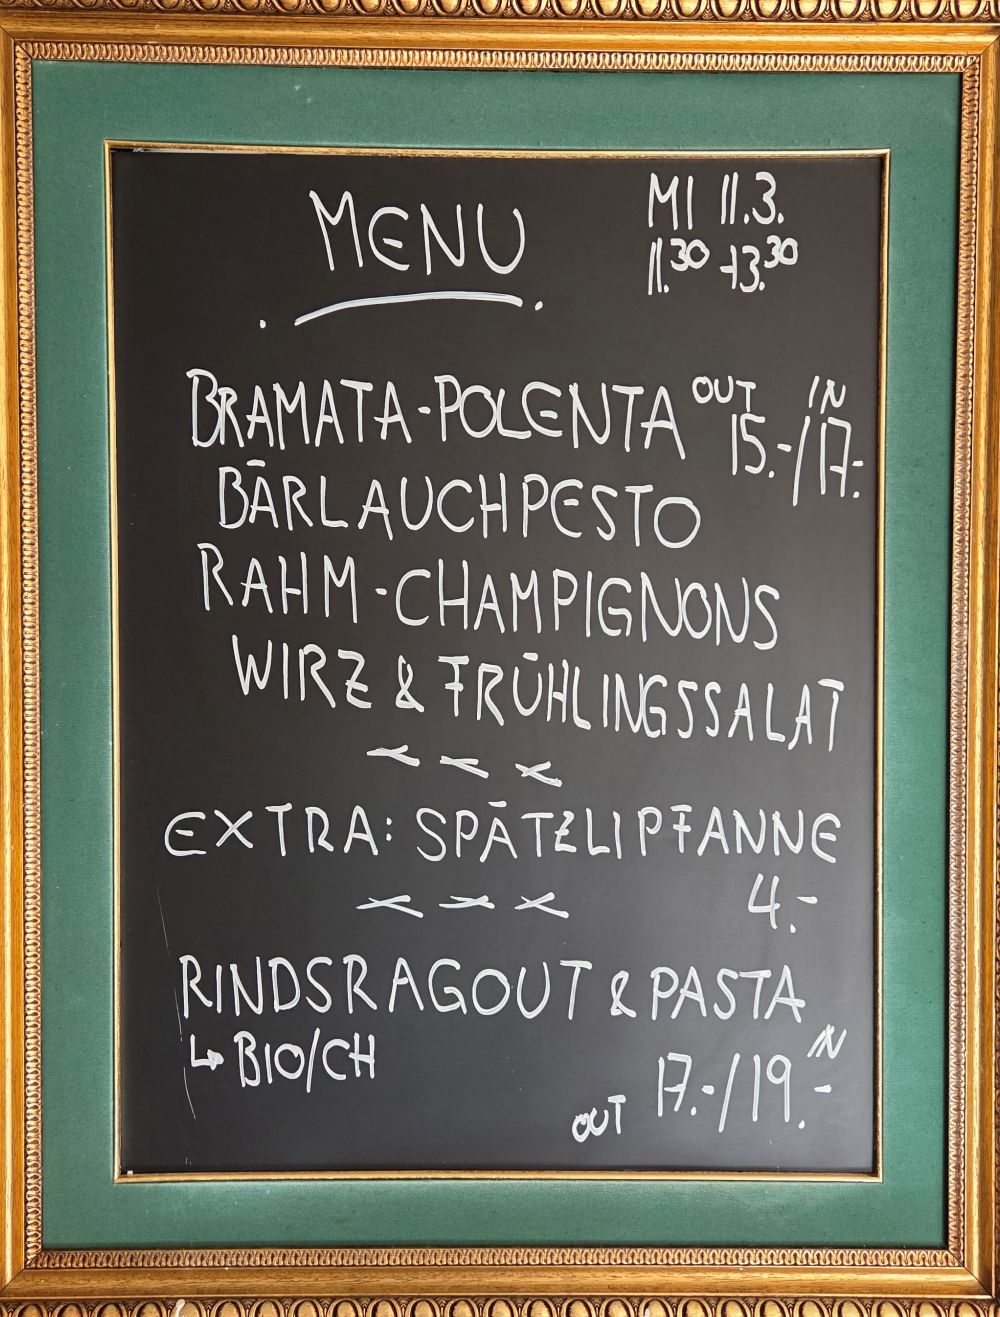 MENU
MI 11.3.
11.30 - 13.30
BRAMATA-POLENTA OUT 15.-/ IN 17.-
BÄRLAUCHPESTO
RAHM-CHAMPIGNONS
WIRZ & FRÜHLINGSSALAT
EXTRA: SPÄTZLIPFANNE
4.-
RINDSRAGOUT & PASTA
↳ BIO/CH
OUT 17.-/19.- IN